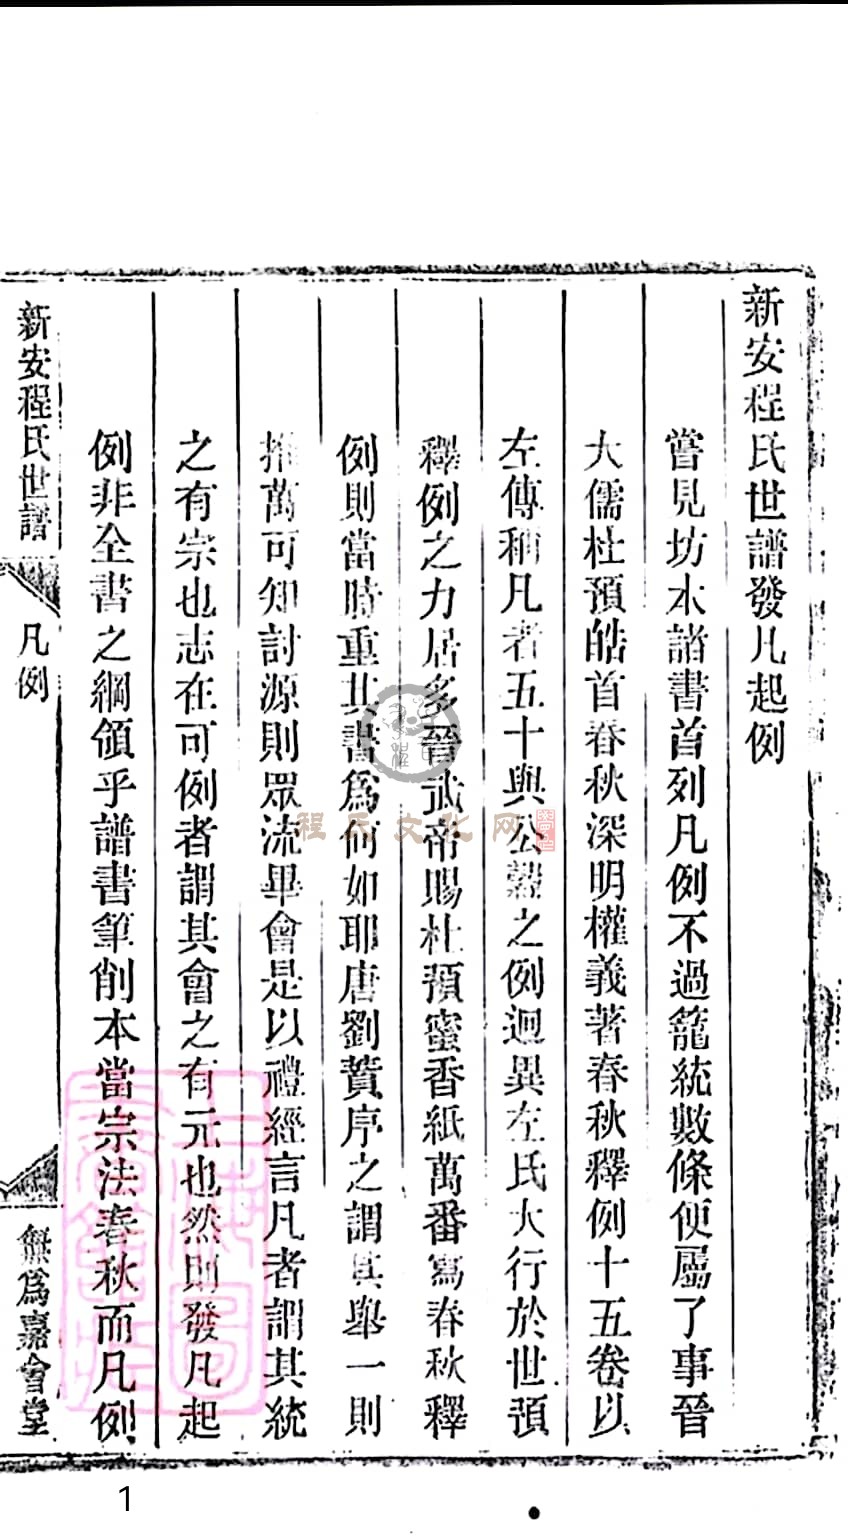 新安程氏世譜發凡起例
嘗見坊本諸書首列凡例不過籠統數條便屬了事晉
大儒杜預皓首春秋深明權義著春秋釋例十五卷以
左傳稱凡者五十與公穀之例迥異左氏大行於世預
釋例之力居多晉武帝賜杜預蜜香紙萬番寫春秋釋
例則當時重其書爲何如耶唐劉蕡序之謂其舉一則
推萬可知討源則眾流畢會是以禮經言凡者謂其統
之有宗也志在可例者謂其會之有元也然則發凡起
例非全書之綱領乎譜書筆削本當宗法春秋而凡例
新安程氏世譜
凡例
無爲嘉會堂
程氏文化网
1